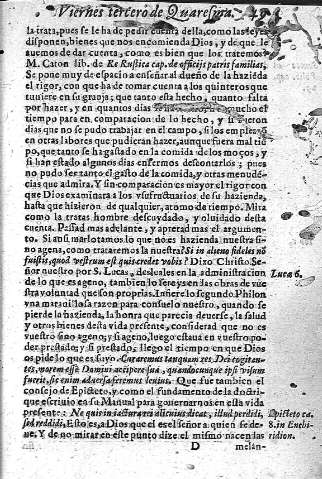 Viernes tercero de Quaresma.
la trata, pues se le ha de pedir cuenta della, como las leyes
disponen, bienes que nos encomienda Dios, y de que le
auemos de dar cuenta, como es bien que los tratemos?
M. Caton lib. de Re Rustica cap. de officijs patris familias,
Se pone muy de espacio a enseñar al dueño de la haziēda
el rigor, con que ha de tomar cuenta a los quinteros que
tuuiere en su granja; que tanto esta hecho, quanto falta
por hazer, y en quantos dias mucho el
tiempo para en comparacion de lo hecho, y si vieron
dias que no se pudo trabajar en el campo, si los empleò
en otras labores que pudieran hazer, aunque fuera mal tiē
po, que tanto se ha gastado en la comida de los moços, y
si han estado algunos dias enfermos descontarlos; pues
no pudo ser tanto el gasto de la comida, y otras menudē
cias que admira. Y sin comparacion es mayor el rigor con
que Dios examinara a los vsufructuarios de su hazienda,
hasta que hizieron de qualquier, atomo de tiempo. Mira
como la tratas hombre descuydado, y oluidado desta
cuenta. Passad mas adelante, y apretad mas el argumen-
to. Si assi malrotamos lo que no es hazienda nuestra si-
no agena, como trataremos la nuestra? Si in alieno fideles nō
fuistis, quod vestrum est quis credet vobis? Dixo Christo Se-
ñor nuestro por S. Lucas, desleales en la administracion
de lo que es ageno, tambien lo sereys en las obras de vue
stra voluntad que son proprias. Infiere lo segundo Philon
vna marauillosa razon para consuelo nuestro, quando se
pierde la hazienda, la honra que parecia deuerse, la salud
y otros bienes desta vida presente, considerad que no es
vuestro sino ageno; y si ageno, luego estaua en vuestro po-
der prestado; y si prestado, llego el tiempo en que Dios
os pide lo que es suyo.
Que tambien el
consejo de Epicteto, y como el fundamento de la doctri-
que escriuio en su Manual para gouernarnos en esta vida
presente: Ne quirin iacturarei alicuius dicat, illud perdidi,
sed reddidi, Esto es, a Dios que es el señor a quien se de-
ue. Y de no mirar en este punto dize el mismo nacen las
D
melan-
Lucæ 6.
Epicteto ca.
8. in Enchi-
ridion.